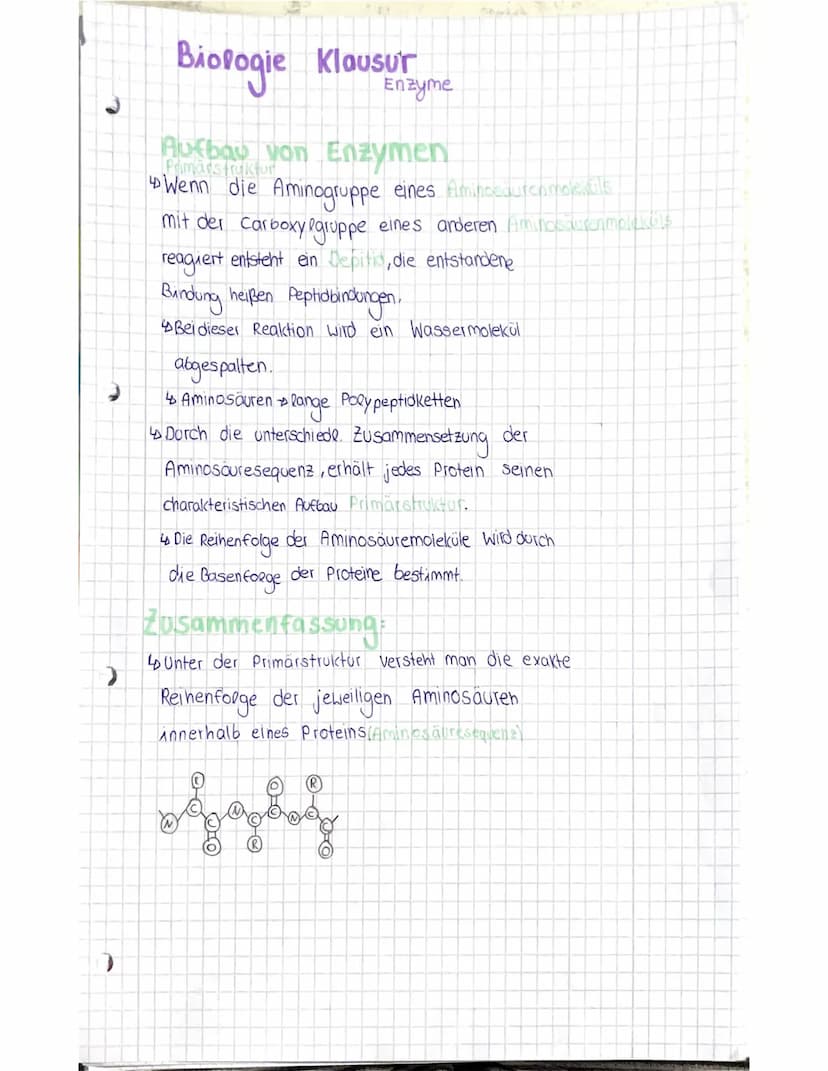 Biologie Klausur
Enzyme
Aufbau von Enzymen
Primärstruktur
↳ Wenn die Aminogruppe eines Aminosäurenmoleküls
mit der Carboxylgruppe eines anderen Aminosäurenmoleküls
reagiert entsteht ein Depitid, die entstandene
Bindung heißen Peptidbindungen.
↳ Bei dieser Reaktion wird ein Wassermolekül
abgespalten.
↳ Aminosäuren → lange Polypeptidketten
↳ Dorch die unterschiedl. Zusammensetzung der
Aminosäuresequenz, erhält jedes Protein seinen
charakteristischen Aufbau Primärstruktur.
↳ Die Reihenfolge der Aminosäuremoleküle wird durch
die Basenfolge der Proteine bestimmt.
Zusammenfassung:
↳ Unter der Primärstruktur versteht man die exakte
Reihenfolge der jeweiligen Aminosäuren
innerhalb eines Proteins (Aminosäuresequenz)
R O R
N C C N C C N C C
O R O